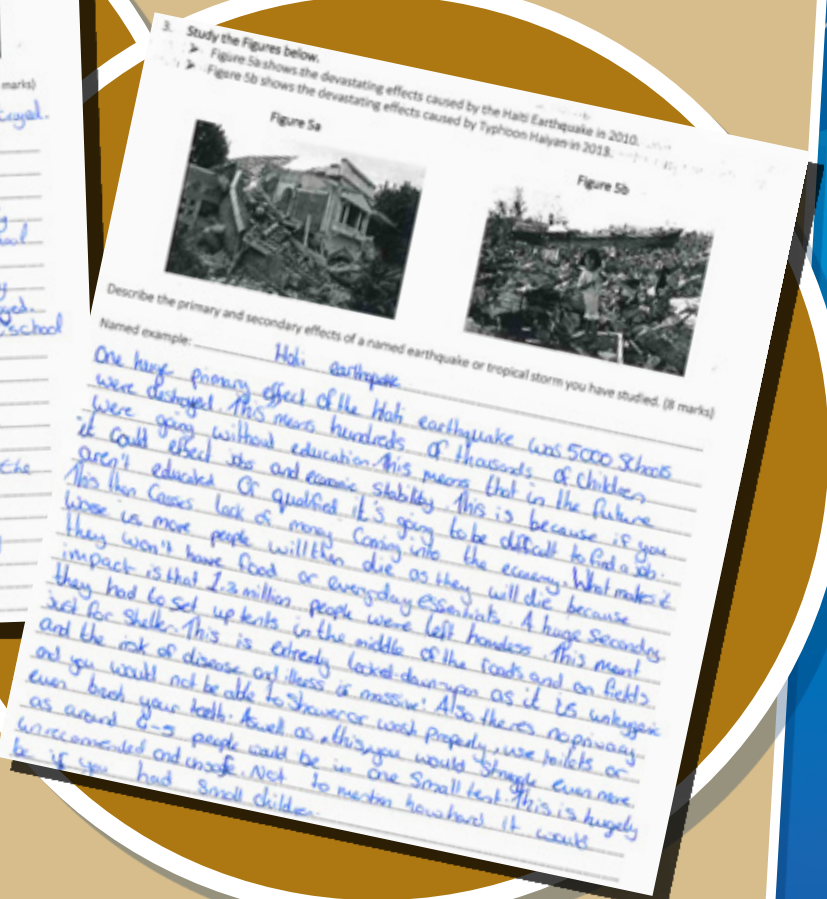 marks)
royed.
y
ool
y
ged.
school
the
3. Study the Figures below.
➤ Figure 5a shows the devastating effects caused by the Haiti Earthquake in 2010.
➤ Figure 5b shows the devastating effects caused by Typhoon Haiyan in 2013.
Figure 5a
Figure 5b
Describe the primary and secondary effects of a named earthquake or tropical storm you have studied. (8 marks)
Named example: Haiti earthquake
One huge primary effect of the Haiti earthquake was 5000 Schools
were destroyed. This means hundreds of thousands of Children
were going without education. This means that in the future
it could effect jobs and economic stability. This is because if you
aren't educated or qualified it's going to be difficult to find a job.
This then Causes lack of money Coming into the economy. What makes it
worse is more people will then die as they will die because
they won't have food or everyday essentials. A huge Secondary
impact is that 1.3 million people were left homeless. This meant
they had to set up tents in the middle of the roads and on fields
just for shelter. This is extremly looked-down-upon as it is unhygenic
and the risk of disease and illness is massive! Also theres no privacy
and you would not be able to Shower or wash properly, use toilets or
even brush your teeth. Aswell as this, you would Struggle even more.
as around 0-5 people would be in one Small tent. This is hugely
unreccomended and unsafe. Not to mention how hard it would
be if you had Small children.